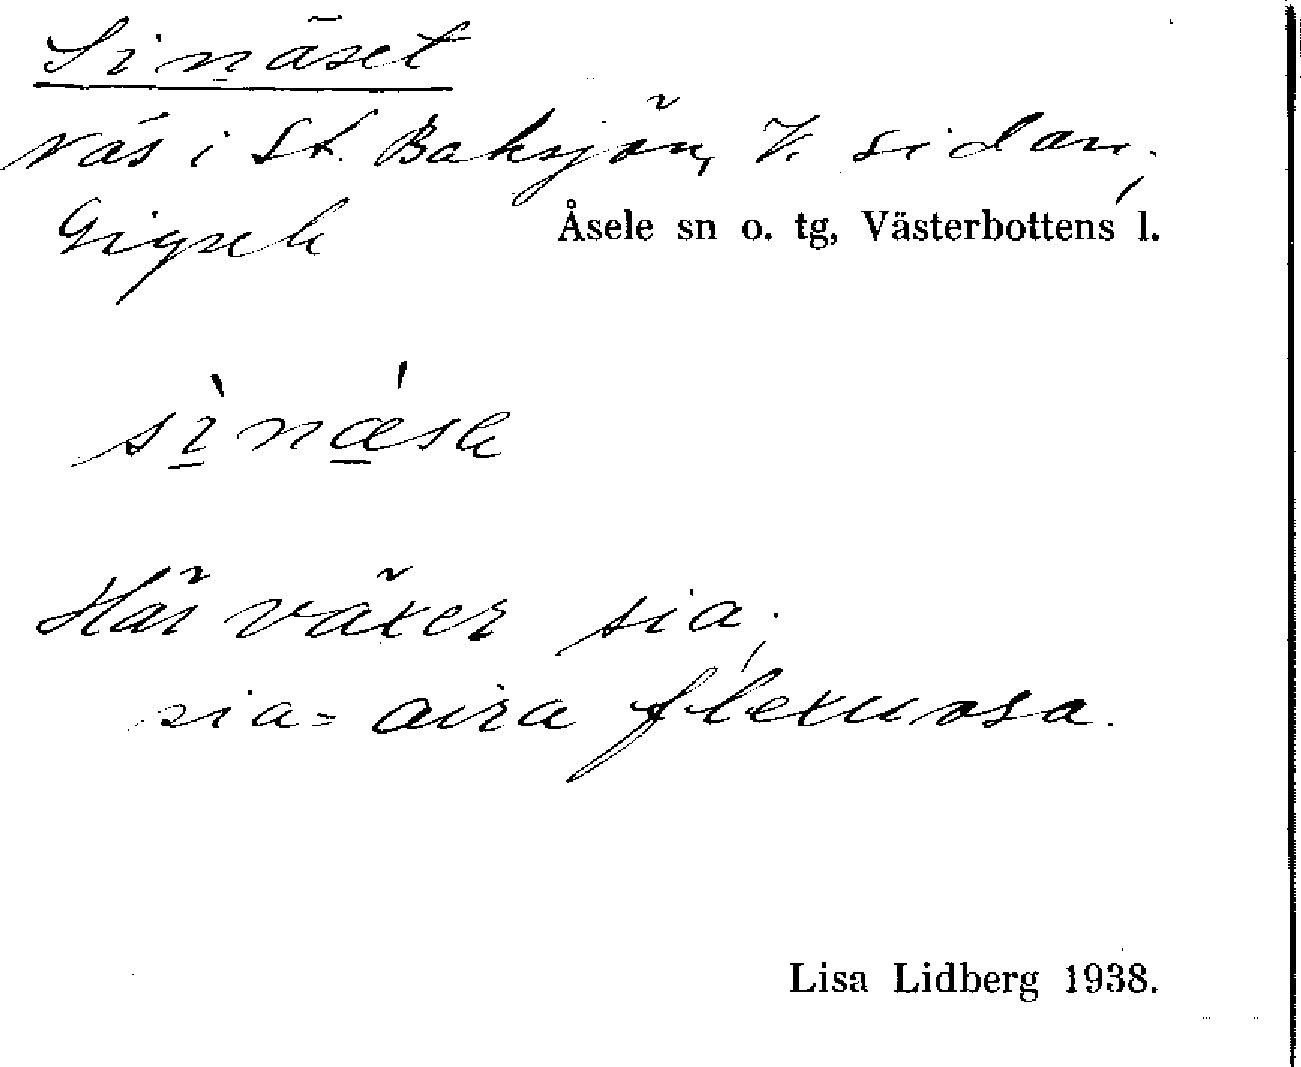 Sinäset
Näs i St. Baksjön, V. sidan;
Gigsele Åsele sn o. tg, Västerbottens l.
sìnǽsə
Här växer sia;
sia = aira flexuosa.
Lisa Lidberg 1938.